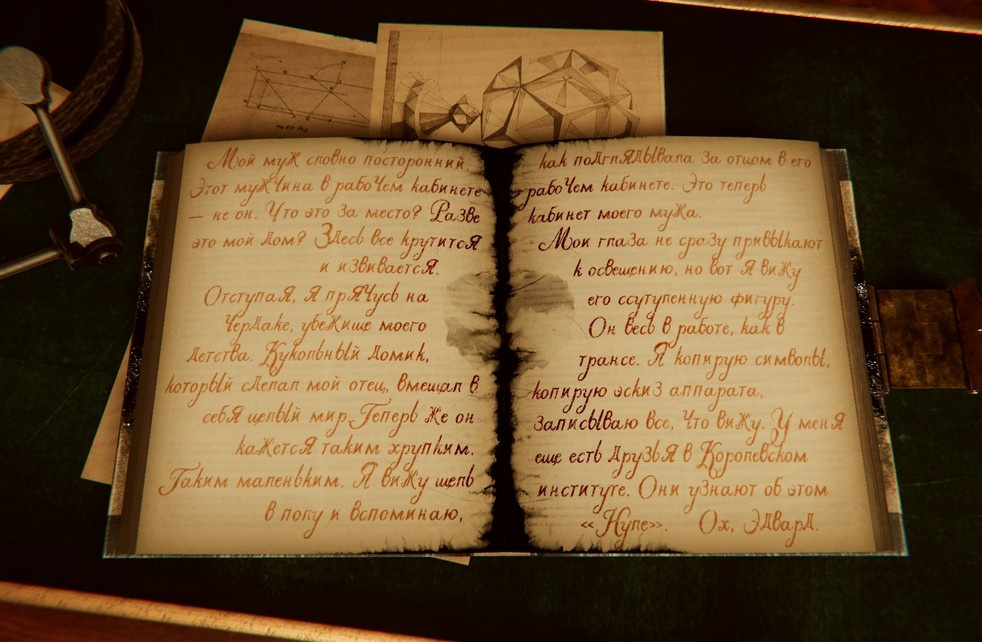 Мой муж словно посторонний.
Этот мужчина в рабочем кабинете
— не он. Что это за место? Разве
это мой дом? Здесь все крутится
и извивается.
Отступая, я прячусь на
чердаке, убежище моего
детства. Кукольный домик,
который сделал мой отец, вмещал в
себя целый мир. Теперь же он
кажется таким хрупким.
Таким маленьким. Я вижу щель
в полу и вспоминаю,
как подглядывала за отцом в его
рабочем кабинете. Это теперь
кабинет моего мужа.
Мои глаза не сразу привыкают
к освещению, но вот я вижу
его ссутуленную фигуру.
Он весь в работе, как в
трансе. Я копирую символы,
копирую эскиз аппарата,
записываю все, что вижу. У меня
еще есть друзья в Королевском
институте. Они узнают об этом
«Куле». Ох, Эдвард.